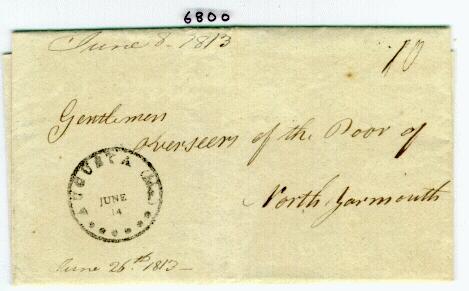 6800
June 8 - 1813
10
Gentlemen
overseers of the Poor of
North Yarmouth
AUGUSTA (Me.)
JUNE
14
June 26th 1813 -